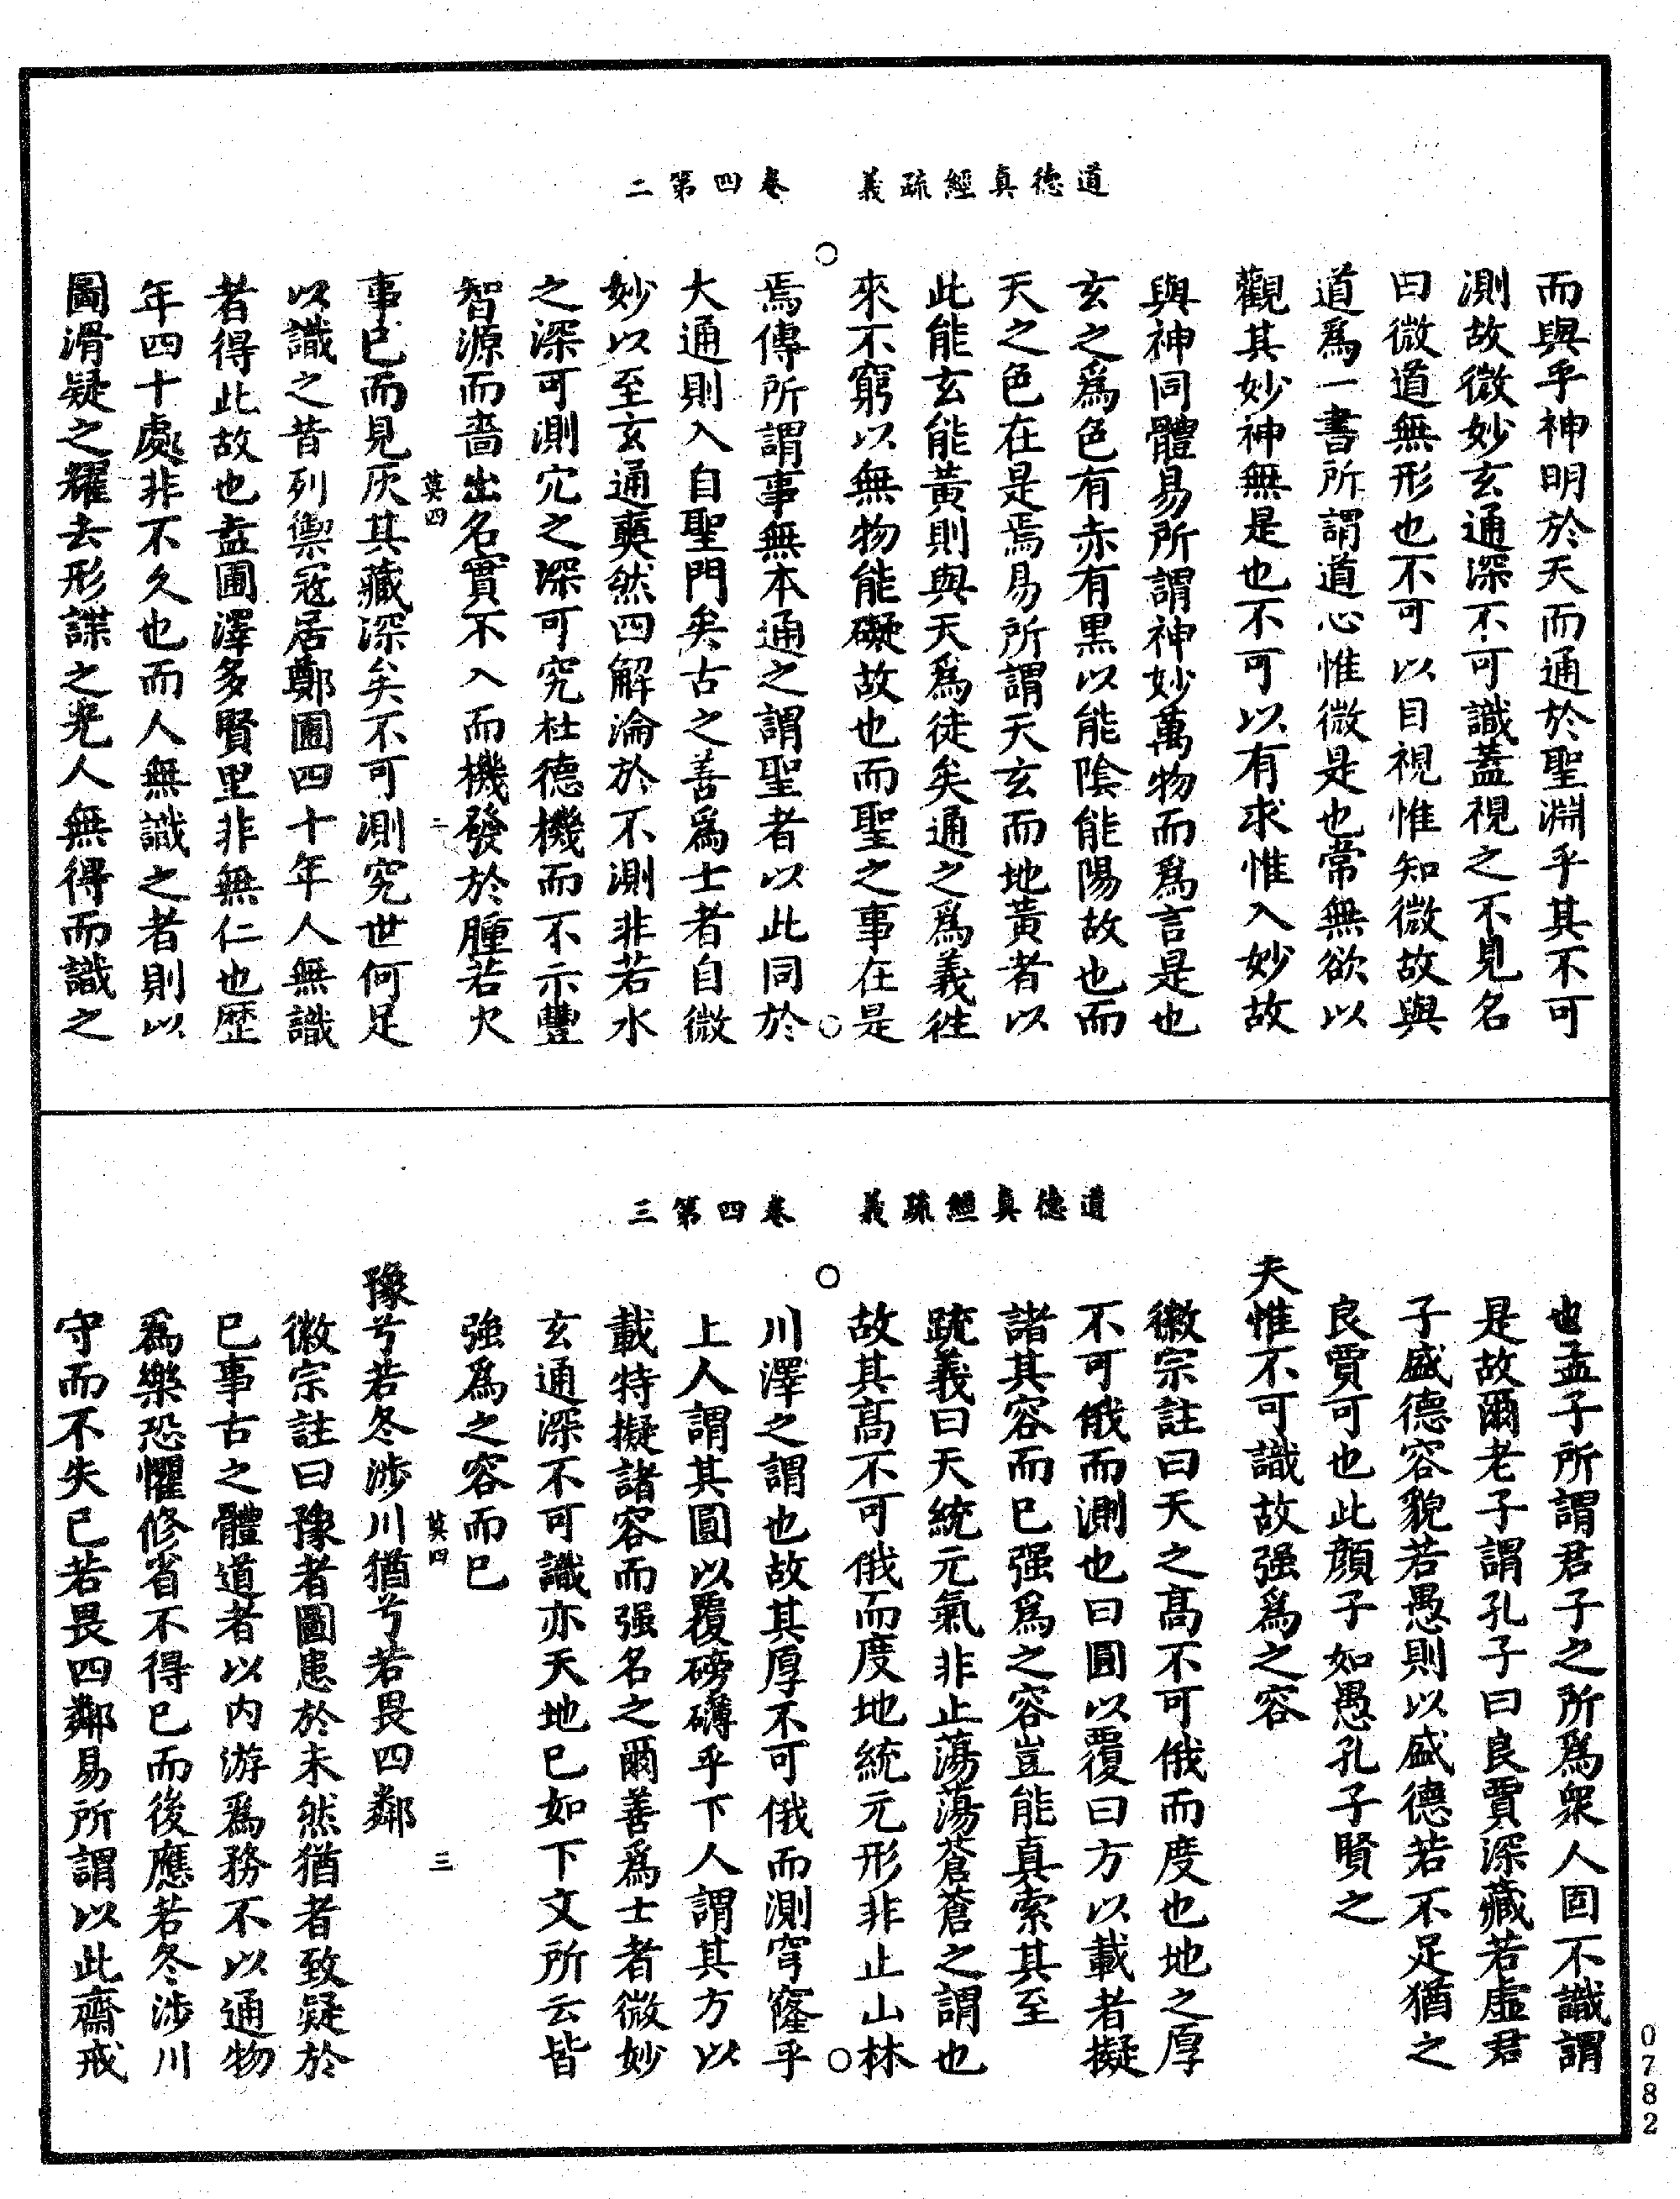 道德真經疏義　卷四第二
而與乎神明於天而通於聖淵乎其不可
測故微妙玄通深不可識蓋視之不見名
曰微道無形也不可以目視惟知微故與
道爲一書所謂道心惟微是也常無欲以
觀其妙神無是也不可以有求惟入妙故
與神同體易所謂神妙萬物而爲言是也
玄之爲色有赤有黒以能陰能陽故也而
天之色在是焉易所謂天玄而地黃者以
此能玄能黃則與天爲徒矣通之爲義徃
來不窮以無物能礙故也而聖之事在是
焉傳所謂事無本通之謂聖者以此同於
大通則入自聖門矣古之善爲士者自微
妙以至玄通奭然四解淪於不測非若水
之深可測穴之深可究杜德機而不示豐
智源而嗇出名實不入而機發於腫若欠
莫四　二
事已而見灰其藏深矣不可測究世何足
以識之昔列禦冦居鄭圃四十年人無識
者得此故也盖圃澤多賢里非無仁也歷
年四十處非不久也而人無識之者則以
圖滑疑之耀去形諜之光人無得而識之
道德真經疏義　卷四第三
也孟子所謂君子之所爲衆人固不識謂
是故爾老子謂孔子曰良賈深藏若虛君
子盛德容貌若愚則以盛德若不足猶之
良賈可也此顏子如愚孔子賢之
夫惟不可識故强爲之容
徽宗註曰天之高不可俄而度也地之厚
不可俄而測也曰圓以覆曰方以載者擬
諸其容而已强爲之容豈能真索其至
疏義曰天統元氣非止蕩蕩蒼蒼之謂也
故其高不可俄而度地統元形非止山林
川澤之謂也故其厚不可俄而測穹窿乎
上人謂其圓以覆磅礴乎下人謂其方以
載特擬諸容而强名之爾善爲士者微妙
玄通深不可識亦天地已如下文所云皆
強爲之容而已
莫四　三
豫兮若冬涉川猶兮若畏四鄰
徽宗註曰豫者圖患於未然猶者致疑於
已事古之體道者以内游爲務不以通物
爲樂恐懼修省不得已而後應若冬涉川
守而不失已若畏四鄰易所謂以此齋戒
0782